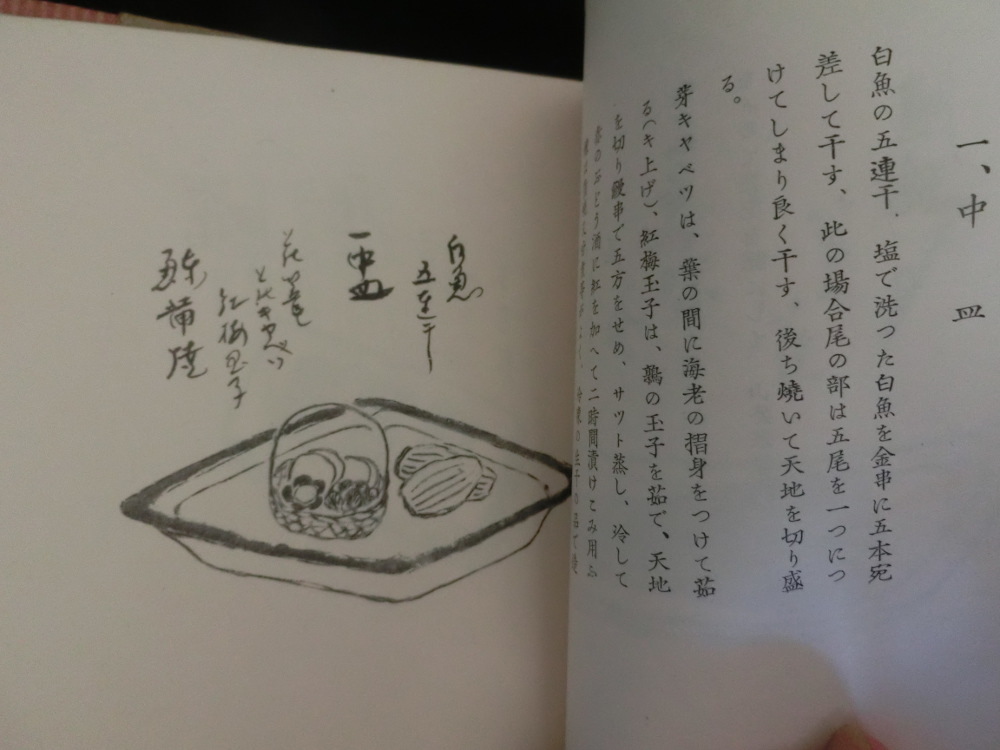 一、中皿
白魚の五連干、塩で洗つた白魚を金串に五本宛
差して干す、此の場合尾の部は五尾を一つにつ
けてしまり良く干す、後ち燒いて天地を切り盛
る。
芽キヤベツは、葉の間に海老の摺身をつけて茹
る(キ上げ)、紅梅玉子は、鶉の玉子を茹で、天地
を切り鏝串で五方をせめ、サツト蒸し、冷して
赤のぶどう酒に紅を加へて二時間漬けこみ用ふ
白魚
五連干
中皿
花籠
紅梅玉子